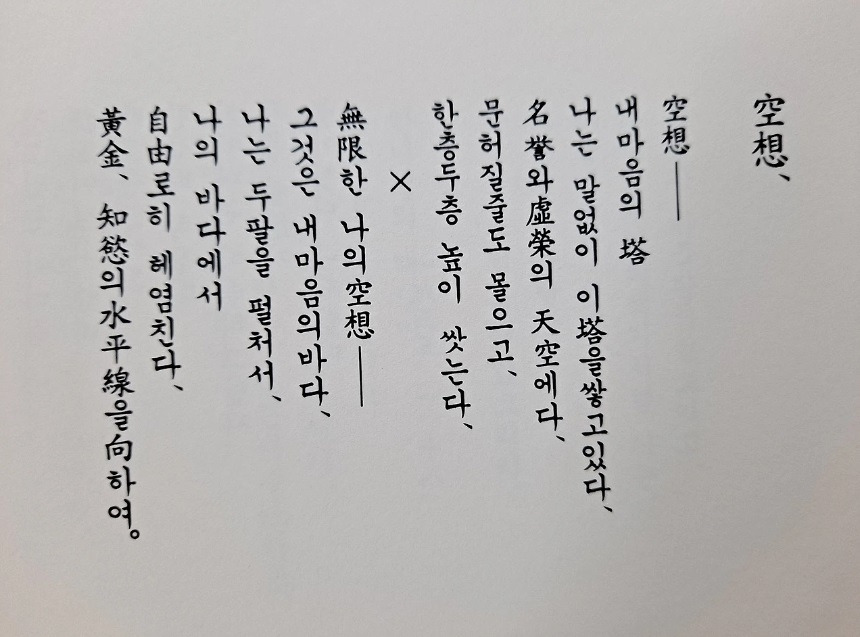 空想、
空想——
내마음의 塔
나는 말없이 이塔을쌓고있다、
名誉와虛榮의 天空에다、
문허질줄도 몰으고、
한층두층 높이 쌋는다、
×
無限한 나의空想——
그것은 내마음의바다、
나는 두팔을 펼처서、
나의 바다에서
自由로히 헤염친다、
黃金、知慾의水平線을向하여。